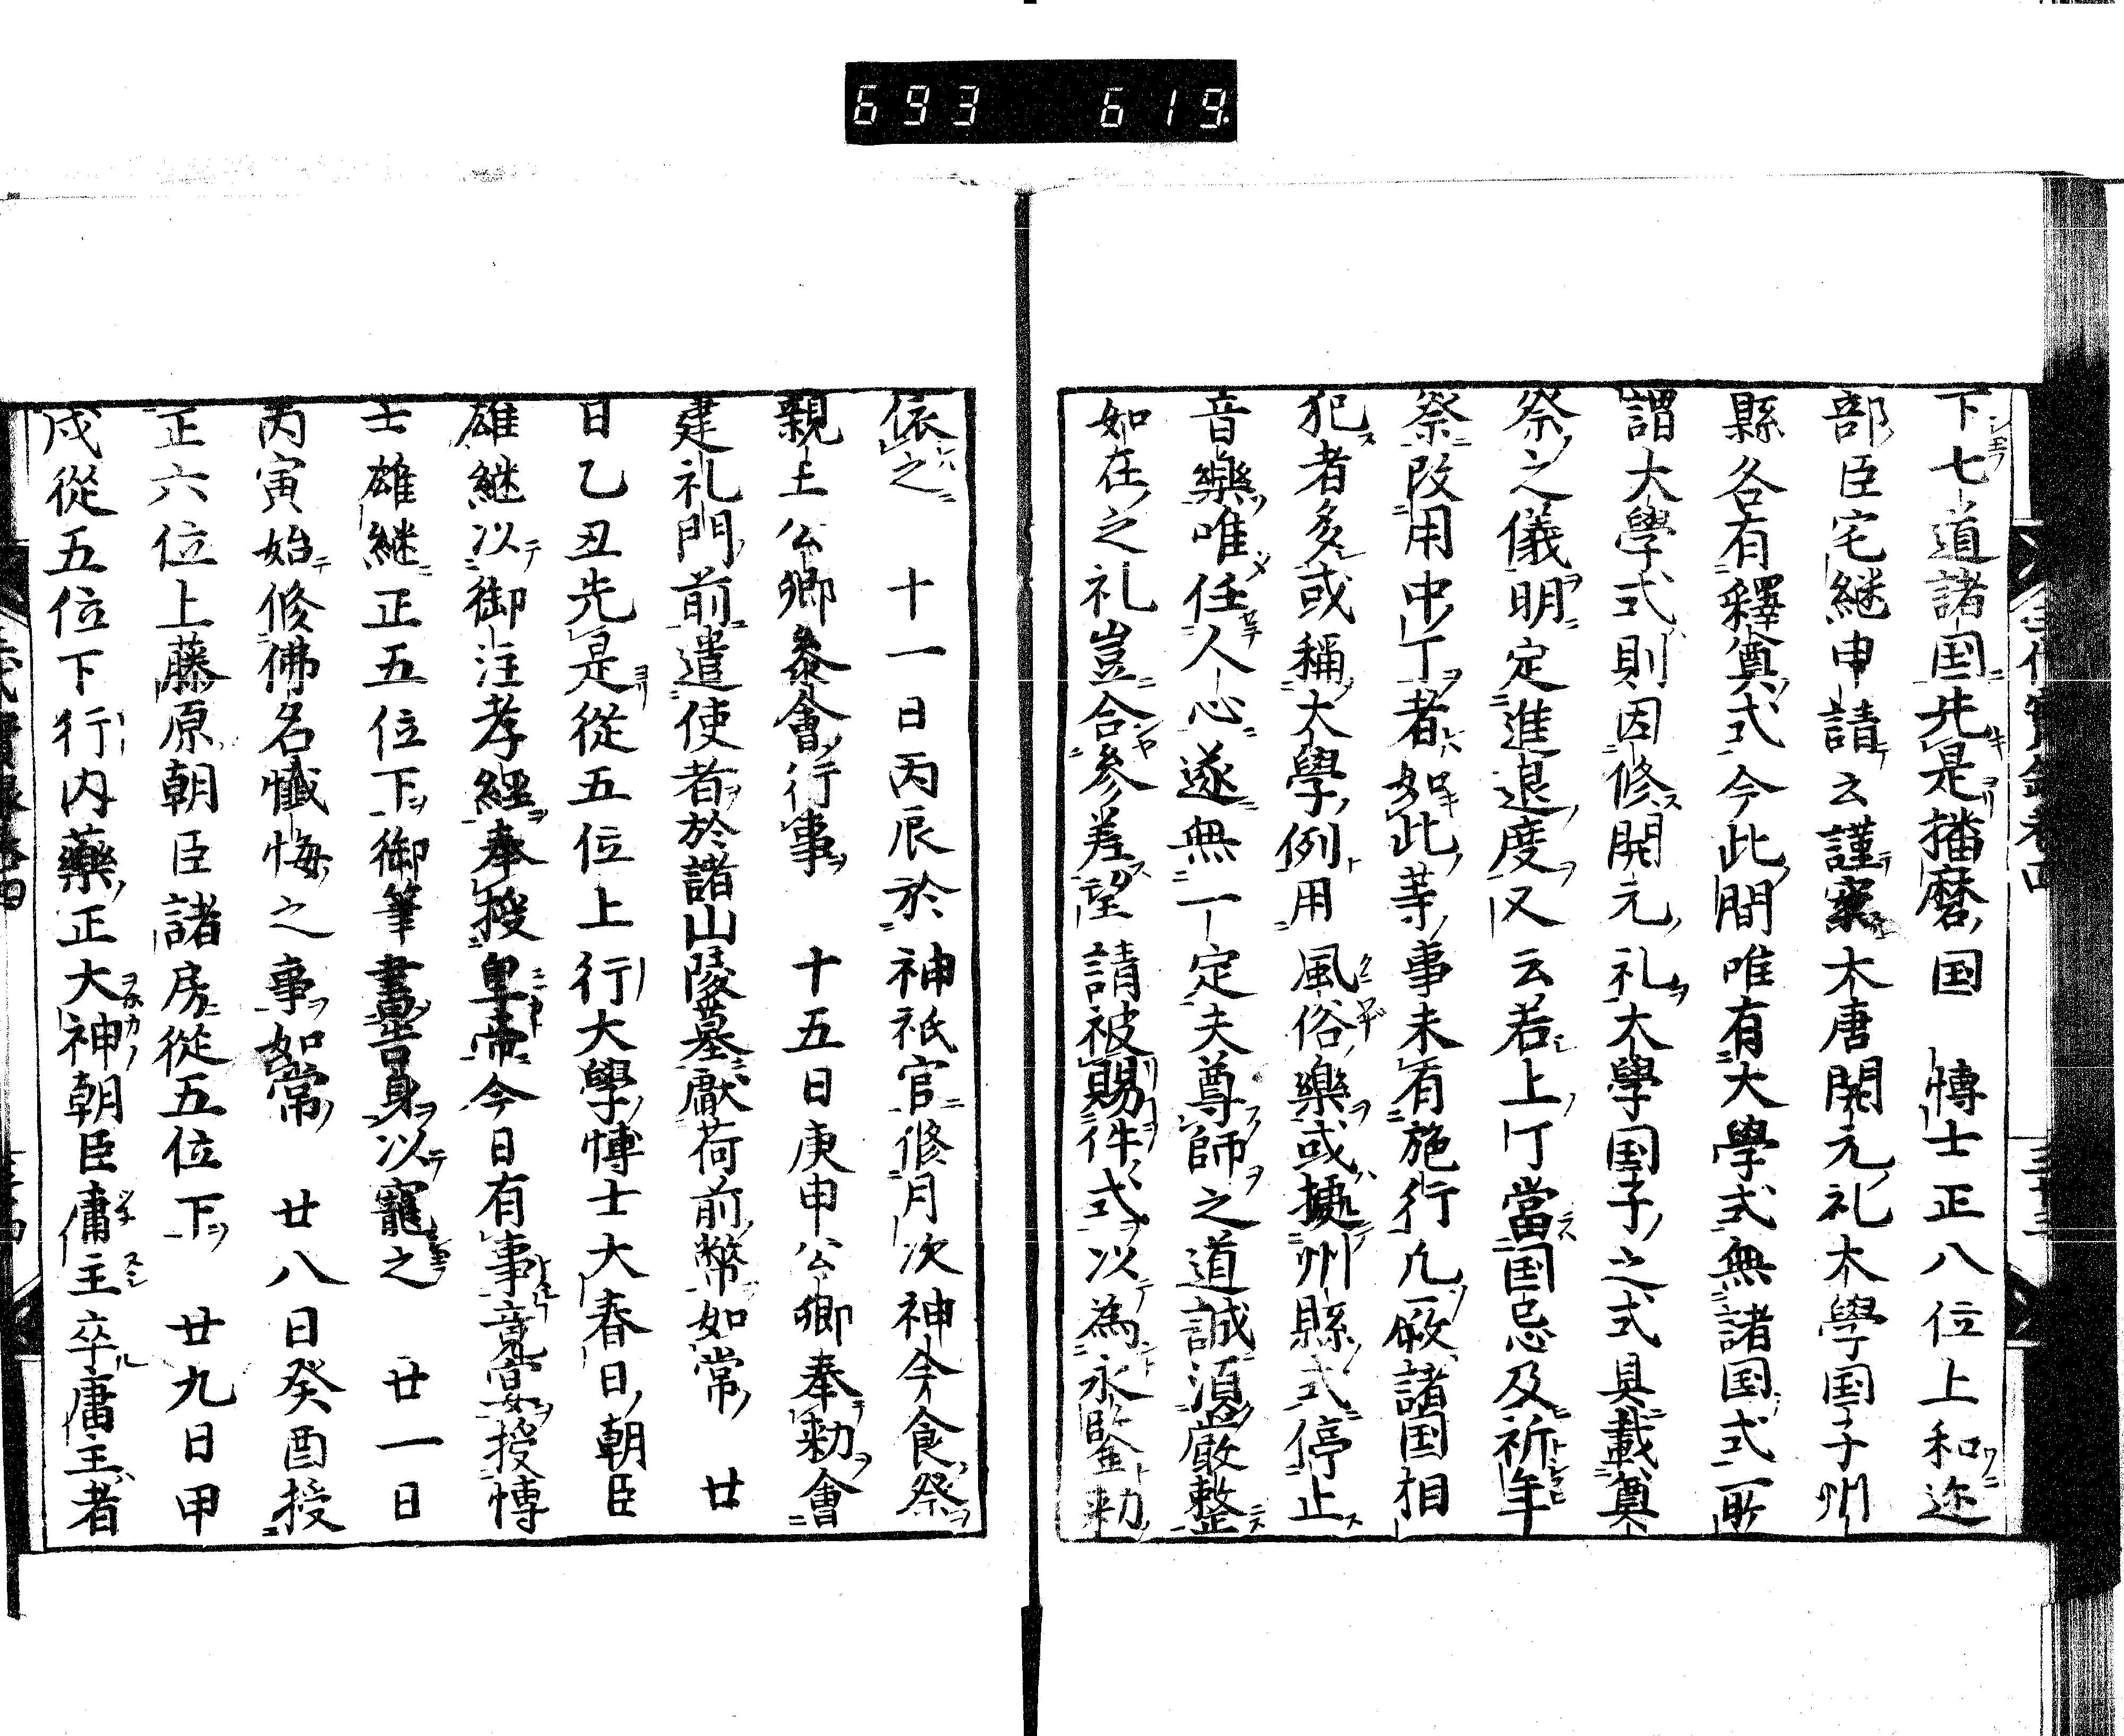 693 619
下七道諸国先是播磨国 博士正八位上和迩
部臣宅継申請云謹案大唐開元礼大學国子州
縣各有釋奠式今此間唯有大學式無諸国式所
謂大學式則因修開元礼大學国子之式具載奠
祭之儀明定進退度又云若上丁當国忌及祈年
祭改用中丁者如此等事未有施行凡厥諸国相
犯者多或稱大學例用風俗樂或據州縣式停止
音樂唯任人心遂無一定夫尊師之道誠湏嚴整
如在之礼豈合參差望請被賜件式以為永鑒勑
依之 十一日丙辰於神祇官修月次神今食祭
親王公卿參會行事 十五日庚申公卿奉勑會
建礼門前遣使者於諸山陵墓獻荷前幣如常 廿
日乙丑先是從五位上行大學博士大春日朝臣
雄継以御注孝經奉授皇帝今日有事竟宴授博
士雄継正五位下御筆書告身以寵之 廿一日
丙寅始修佛名懺悔之事如常 廿八日癸酉授
正六位上藤原朝臣諸房從五位下 廿九日甲
戌從五位下行内藥正大神朝臣庸主卒庸主者